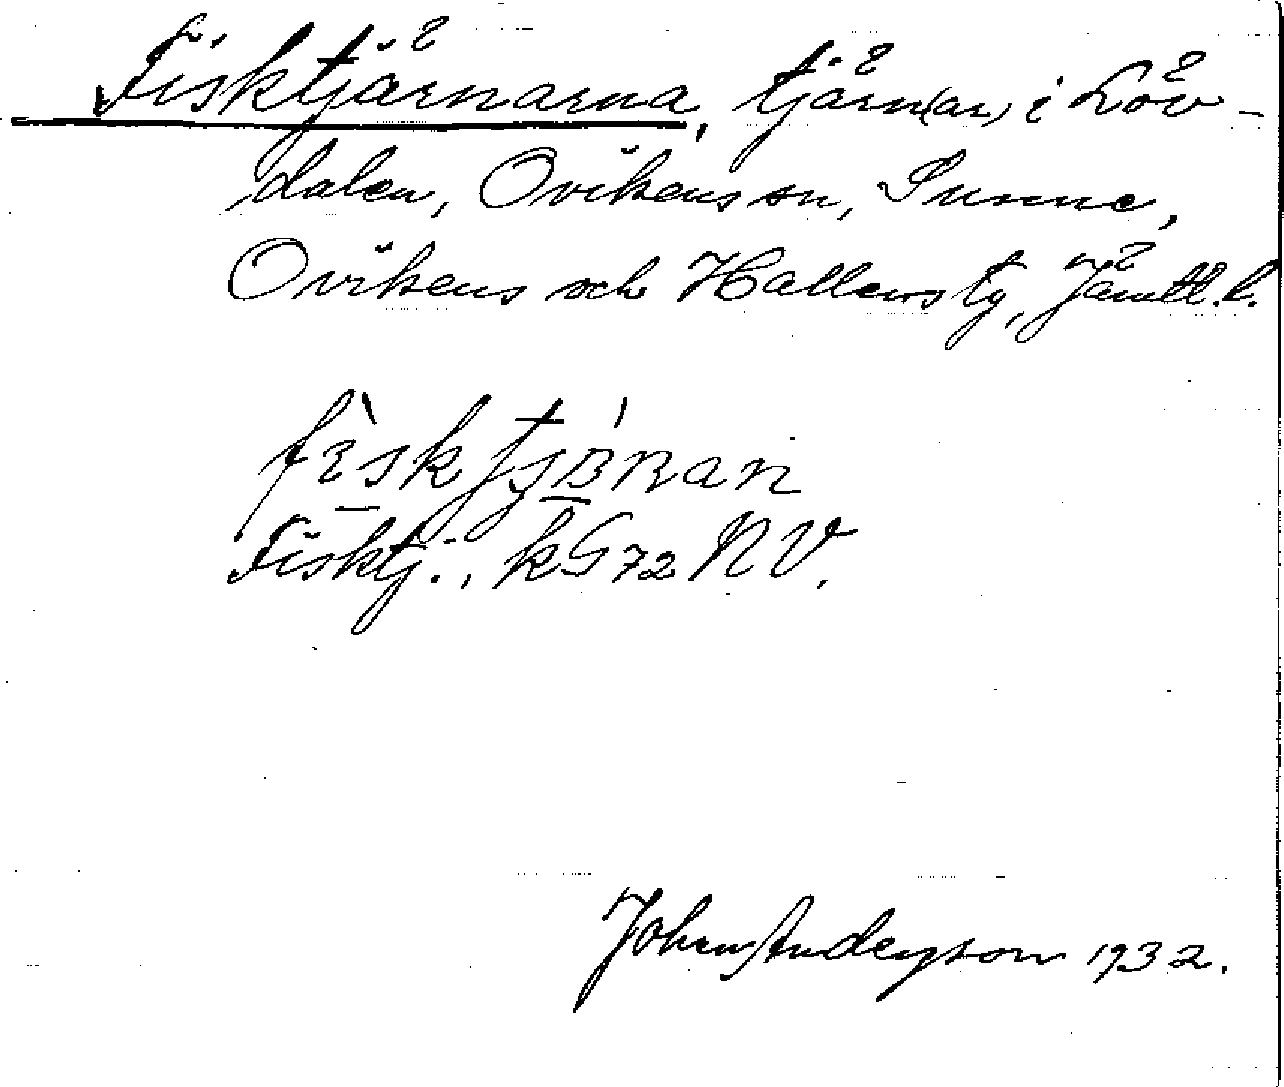 Fisktjärnarna, tjärn(ar) i Löv-
dalen, Ovikens sn, Sunne,
Ovikens och Hallens tg, Jämtl. l.
Fisktj., kG72 NV.
John Anderson 1932.